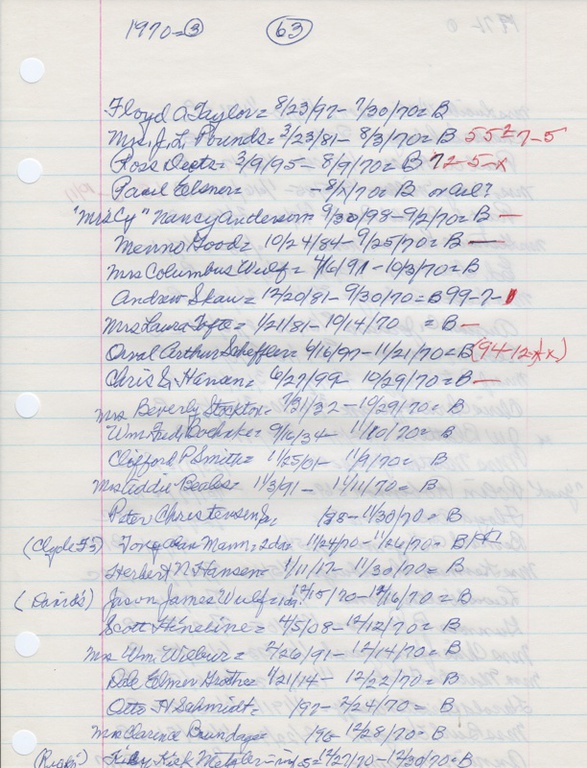 1970= ③ 63
Floyd O. Taylor= 8/23/97- 7/30/70= B
Mrs. J. L. Pounds= 3/23/81- 8/3/70= B 55=7-5
Ross Deets= 3/9/95- 8/9/70= B 72-5-x
Paul Elsner= - 8/ /70= B or Ael?
"Mrs Cy" Nancy Anderson= 9/30/98- 9/2/70= B —
Menno Good= 10/24/84- 9/25/70= B —
Mrs Columbus Wulf= 4/6/91- 10/3/70= B
Andrew Skau= 12/20/81- 9/30/70= B 99-7-1
Mrs Laura Tofte= 1/21/81- 10/14/70 = B —
Orval Arthur Scheffler= 4/6/97- 11/21/70= B (94-12-x)
Chris S. Hansen= 6/27/99- 10/29/70= B —
Mrs Beverly Stockton= 7/31/32- 10/29/70= B
Wm Fred= 9/16/34- 11/ /70= B
Clifford P. Smith= 11/25/01- 11/9/70= B
Mrs Eddie Beales= 11/3/91- 11/11/70= B
Peter Christensen Sr= /88- 11/30/70= B
(Clyde F's) Mann= 2da= 11/24/70- 11/26/70= B
Herbert N. Hansen= 1/11/17- 11/30/70= B
(David's) Jason James Wulf= 12/15/70- 12/16/70= B
Scott Hineline= 4/5/08- 12/12/70= B
Mrs Wm. Wilbur= 2/26/91- 12/14/70= B
Dale Elmer Grothe= 1/21/14- 12/22/70= B
Otto H. Schmidt= /97- 2/24/70= B
Mrs Clarence Brundage= /96- 12/28/70= B
Kirk 12/27/70- 12/30/70= B